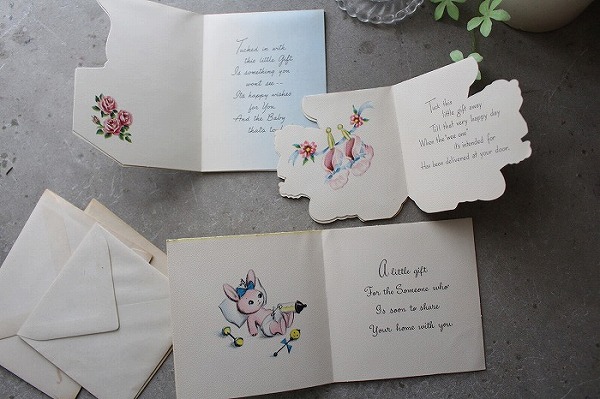 Tucked in with
this little Gift
Is something you
won't see --
It's happy wishes
for You
And the Baby
that's to
Tuck this
little gift away
Till that very happy day
When the "wee one"
it's intended for
Has been delivered at your door.
A little gift
For the Someone who
Is soon to share
Your home with you